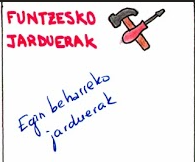 FUNTZESKO
JARDUERAK
Egin beharreko
jarduerak